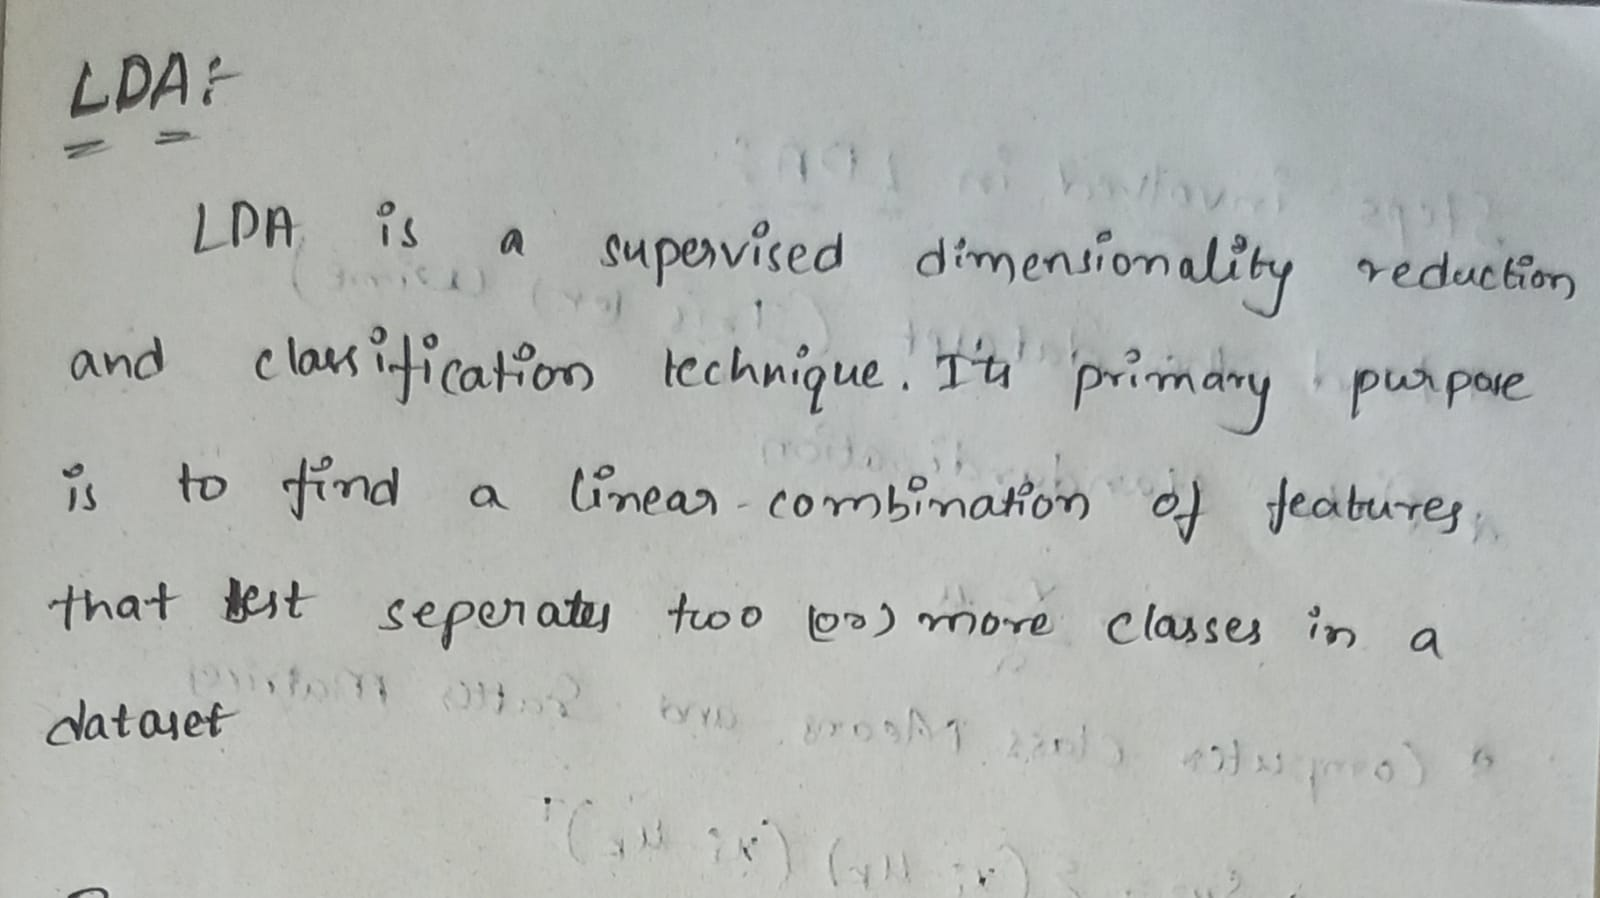 LDA:-
LDA is a supervised dimensionality reduction
and classification technique. It's primary purpose
is to find a linear combination of features
that best seperates two (or) more classes in a
dataset